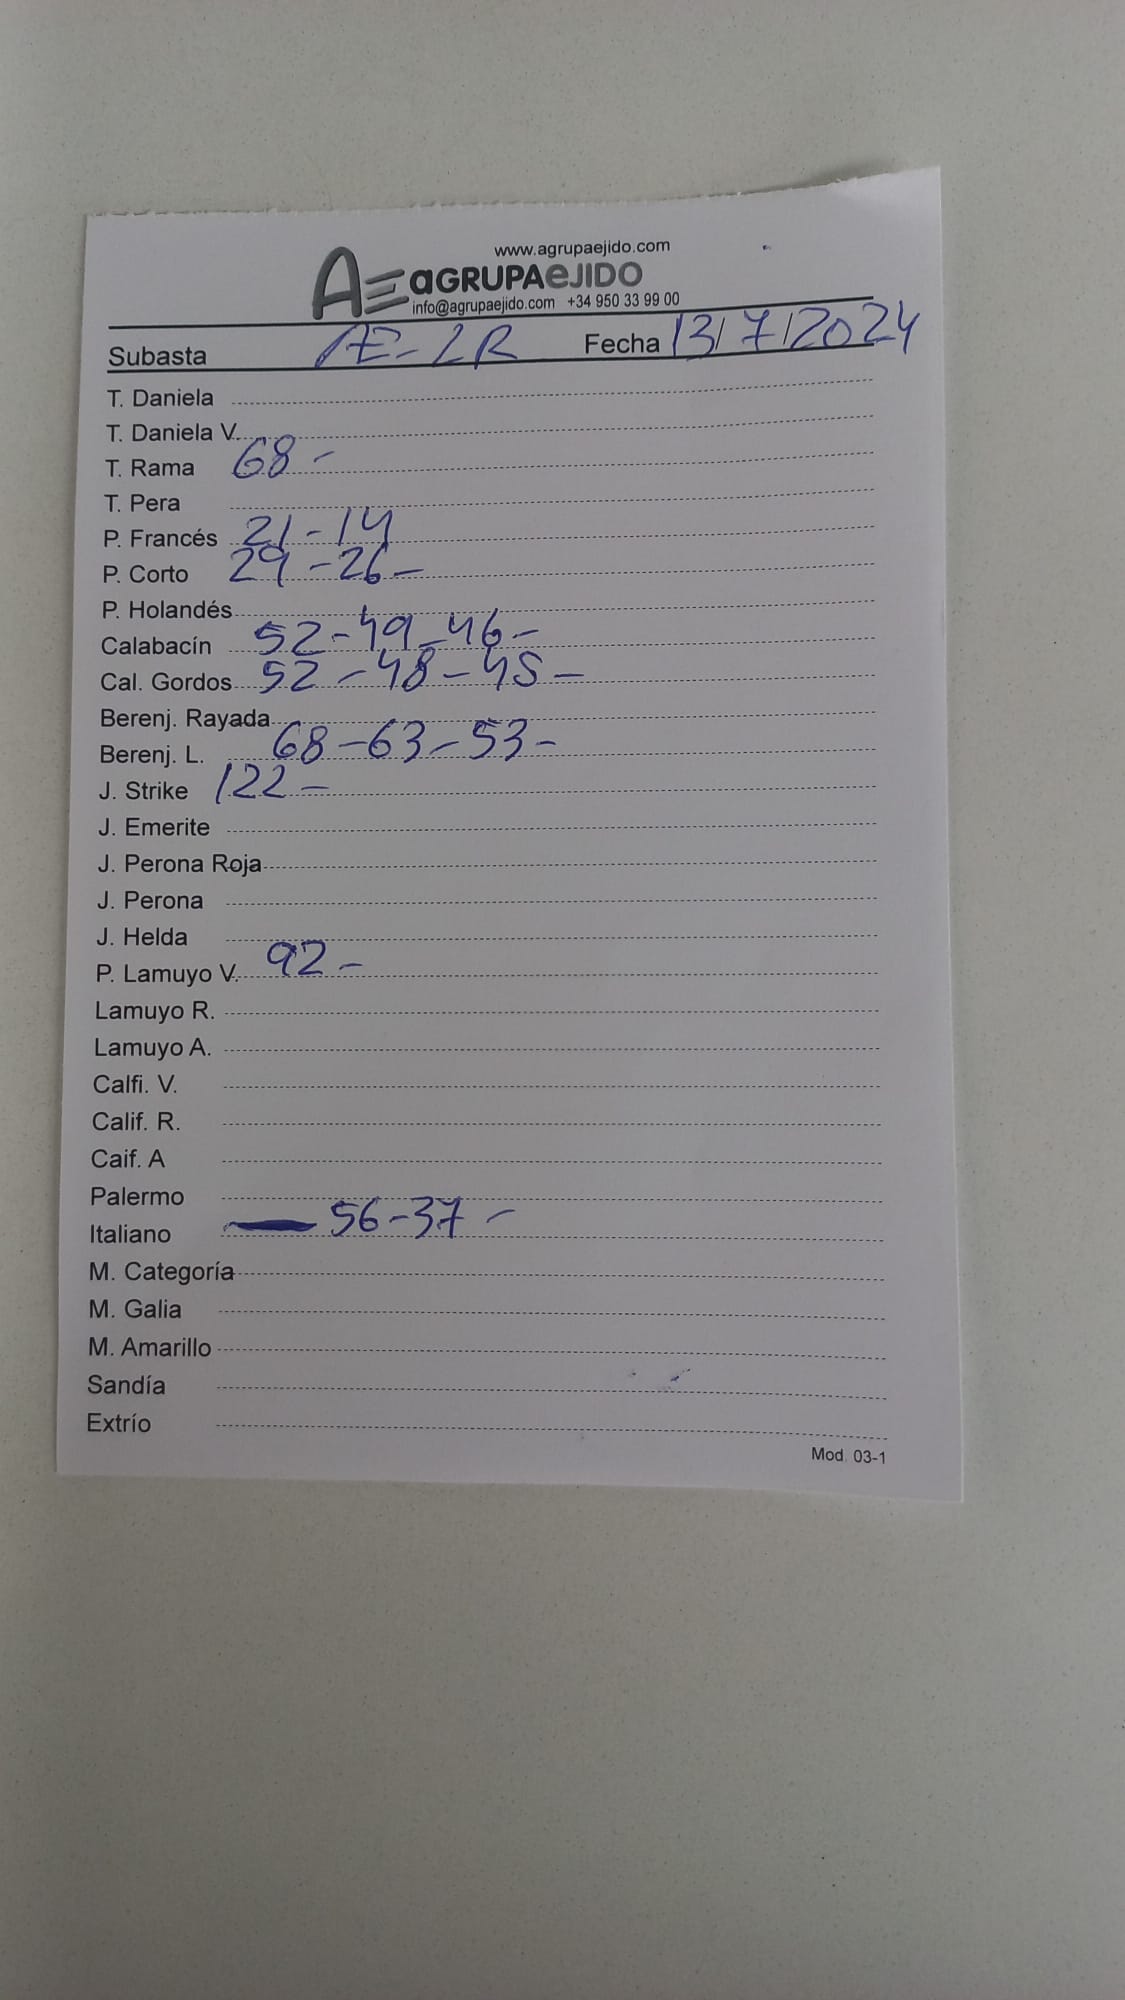 www.agrupaejido.com
AE aGRUPAeJIDO
info@agrupaejido.com +34 950 33 99 00
Subasta AE-LR Fecha 13/7/2024
T. Daniela
T. Daniela V.
T. Rama 68 -
T. Pera
P. Francés 21-14
P. Corto 29-26-
P. Holandés
Calabacín 52-49-46-
Cal. Gordos 52-48-45-
Berenj. Rayada
Berenj. L. 68-63-53-
J. Strike 122-
J. Emerite
J. Perona Roja
J. Perona
J. Helda
P. Lamuyo V. 92-
Lamuyo R.
Lamuyo A.
Calfi. V.
Calif. R.
Caif. A
Palermo
Italiano 56-37-
M. Categoría
M. Galia
M. Amarillo
Sandía
Extrío
Mod. 03-1